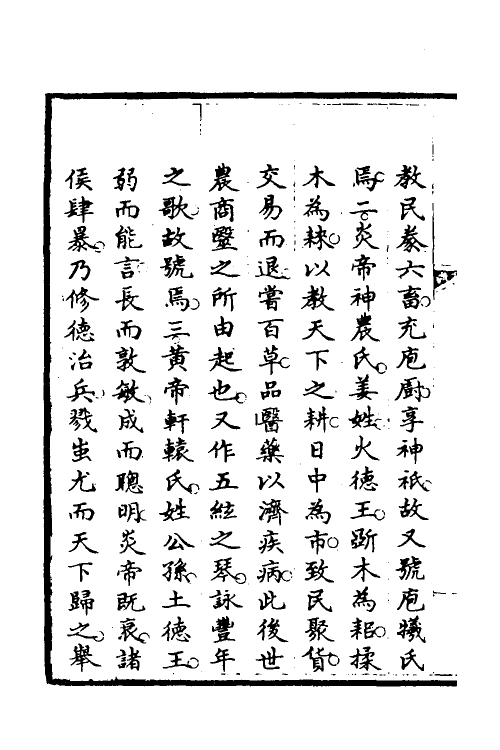 教民豢六畜。充庖廚。享神祇。故又號庖犧氏
焉。二炎帝神農氏。姜姓。火德王。斲木為耜。揉
木為耒。以教天下之耕。日中為市。致民聚貨。
交易而退。嘗百草。品醫藥以濟疾病。此後世
農商毉之所由起也。又作五絃之琴。詠豐年
之歌。故號焉。三黃帝軒轅氏。姓公孫。土德王。
弱而能言。長而敦敏。成而聰明。炎帝既衰。諸
侯肆暴。乃修德治兵。戮蚩尤而天下歸之。舉